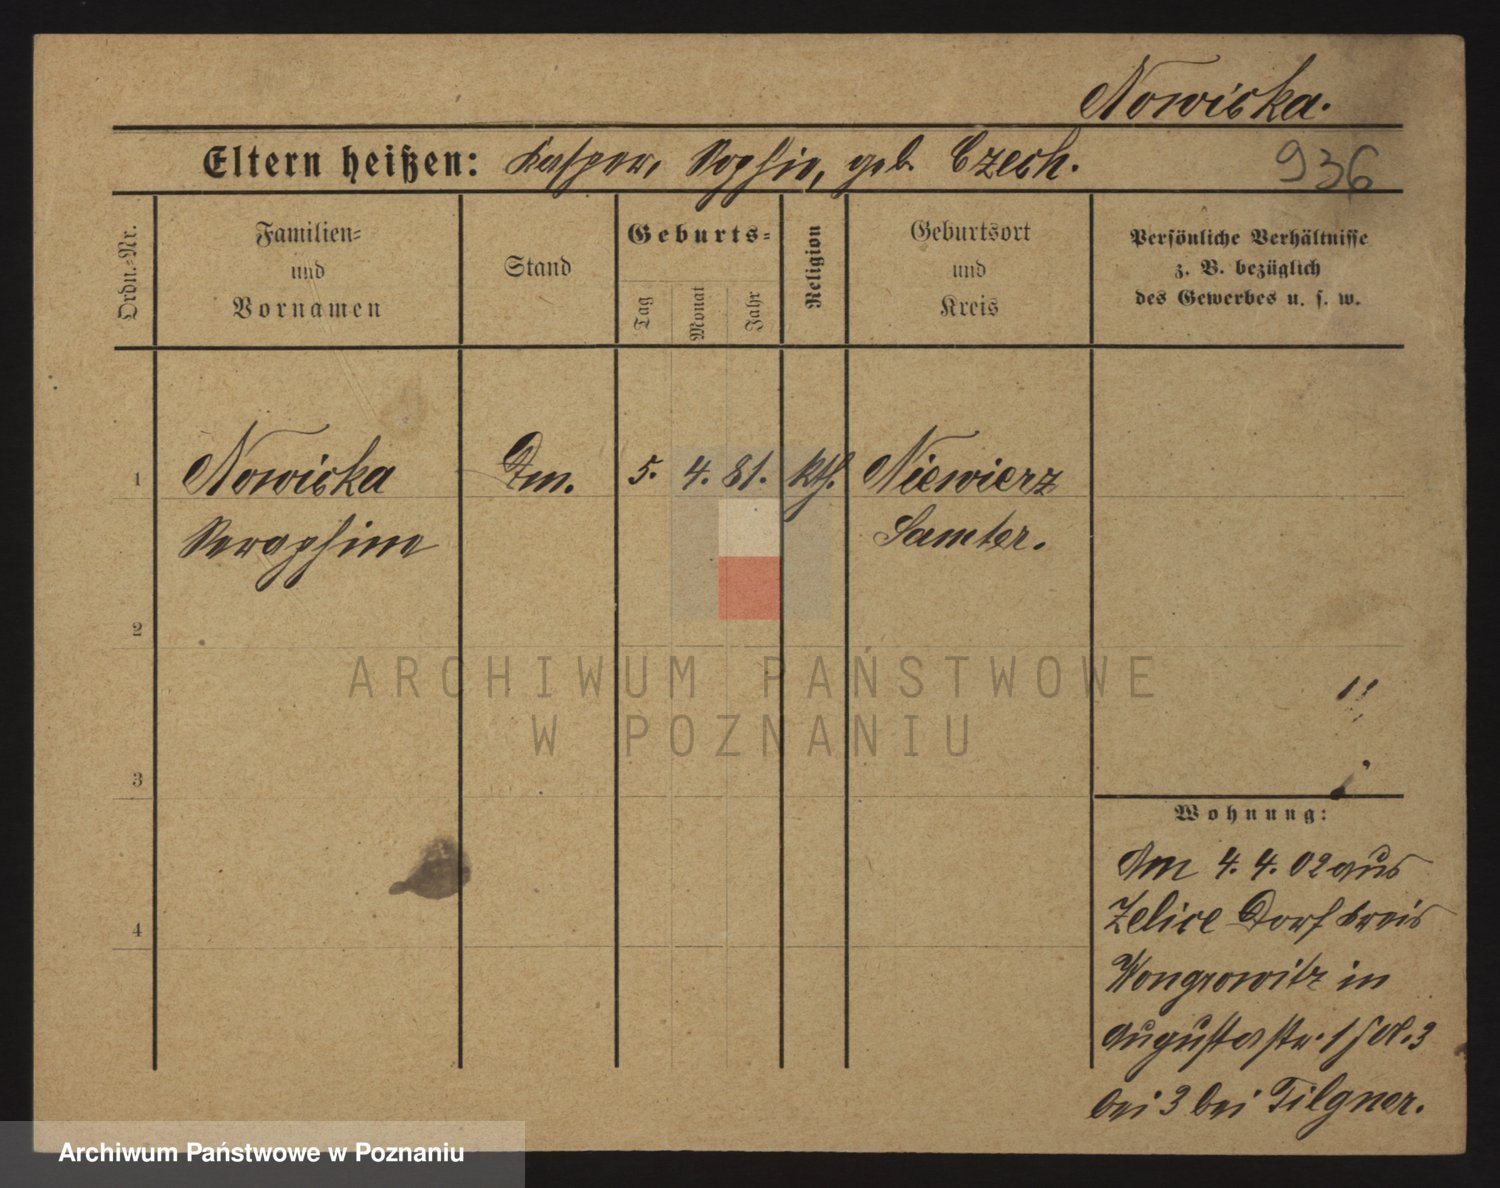 Nowicka.
Eltern heißen: Kasper, Sophie, geb. Czech.
936
Ordn.=Nr.
Familien=
und
Vornamen
Stand
Geburts=
Tag
Monat
Jahr
Religion
Geburtsort
und
Kreis
Persönliche Verhältnisse
z. B. bezüglich
des Gewerbes u. s. w.
1 Nowicka Dm. 5. 4. 81. kth. Niewierz
Seraphine Samter.
2
ARCHIWUM PAŃSTWOWE
W POZNANIU
3
Wohnung:
Am 4. 4. 02 aus
Zelice Dorf Kreis
4
Wongrowitz in
Augustastr. 1
bei 3 bei Tilgner.
Archiwum Państwowe w Poznaniu